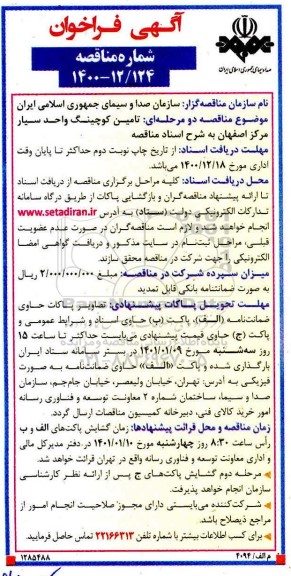 آگهی فراخوان
شماره مناقصه
۱۴۰۰-۱۲/۱۲۴
صدا و سیمای جمهوری اسلامی ایران
نام سازمان مناقصه‌گزار: سازمان صدا و سیمای جمهوری اسلامی ایران
موضوع مناقصه دو مرحله‌ای: تامین کوچینگ واحد سیار
مرکز اصفهان به شرح اسناد مناقصه
مهلت دریافت اسناد: از تاریخ چاپ نوبت دوم حداکثر تا پایان وقت
اداری مورخ ۱۴۰۰/۱۲/۱۸ می‌باشد.
محل دریافت اسناد: کلیه مراحل برگزاری مناقصه از دریافت اسناد
تا ارائه پیشنهاد مناقصه‌گران و بازگشایی پاکات از طریق درگاه سامانه
تدارکات الکترونیکی دولت (ستاد) به آدرس www.setadiran.ir
انجام خواهد شد و لازم است مناقصه‌گران در صورت عدم عضویت
قبلی، مراحل ثبت‌نام در سایت مذکور و دریافت گواهی امضا
الکترونیکی را جهت شرکت در مناقصه محقق سازند.
میزان سپرده شرکت در مناقصه: مبلغ ۲/۰۰۰/۰۰۰/۰۰۰ ریال
به صورت ضمانتنامه بانکی قابل تمدید
مهلت تحویل پاکات پیشنهادی: تصاویر پاکات حاوی
ضمانت‌نامه (الف)، پاکت (ب) حاوی اسناد و شرایط عمومی و
پاکت (ج) حاوی قیمت پیشنهادی می‌بایست حداکثر تا ساعت ۱۵
روز سه‌شنبه مورخ ۱۴۰۱/۰۱/۰۹ در بستر سامانه ستاد ایران
بارگذاری شده و پاکت «الف» حاوی ضمانت‌نامه به صورت
فیزیکی به آدرس: تهران، خیابان ولیعصر، خیابان جام‌جم، سازمان
صدا و سیما، ساختمان شماره ۲ معاونت توسعه و فناوری رسانه
امور خرید کالای فنی، دبیرخانه کمیسیون مناقصات ارسال گردد.
زمان مناقصه و محل قرائت پیشنهادها: زمان گشایش پاکت‌های الف و ب
رأس ساعت ۸:۳۰ روز چهارشنبه مورخ ۱۴۰۱/۰۱/۱۰ در دفتر مدیرکل مالی
و اداری معاونت توسعه و فناوری رسانه واقع در تهران قرائت خواهد شد.
مرحله دوم گشایش پاکت‌های ج پس از ارائه نظر کارشناسی
سازمان انجام خواهد پذیرفت.
شرکت‌کننده می‌بایستی دارای مجوز/صلاحیت انجام امور از
مراجع ذیصلاح باشد.
برای کسب اطلاعات بیشتر با شماره تلفن ۲۲۱۶۶۲۱۳ تماس حاصل فرمایید.
م الف/ ۴۰۹۴
۱۲۸۵۴۸۸